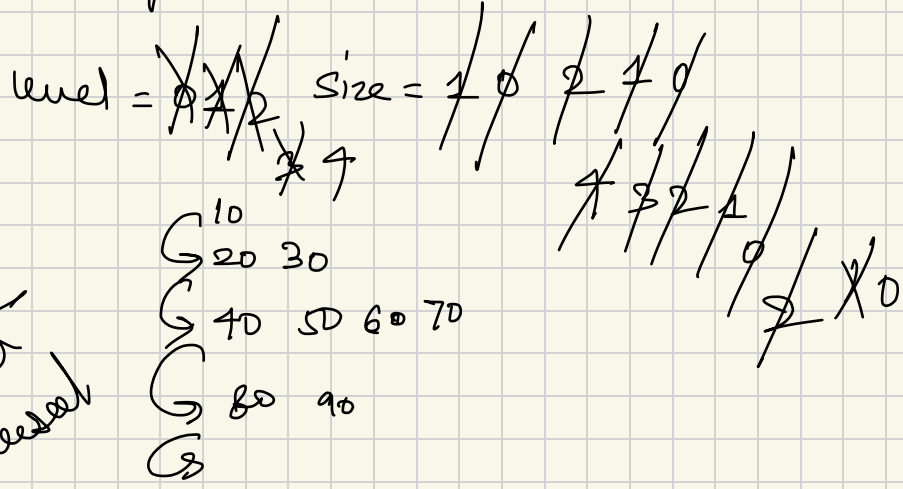 level = 0 1 2 size = 1 0 2 1 0
3 4 4 3 2 1 0
2 1 0
10
20 30
40 50 60 70
80 90